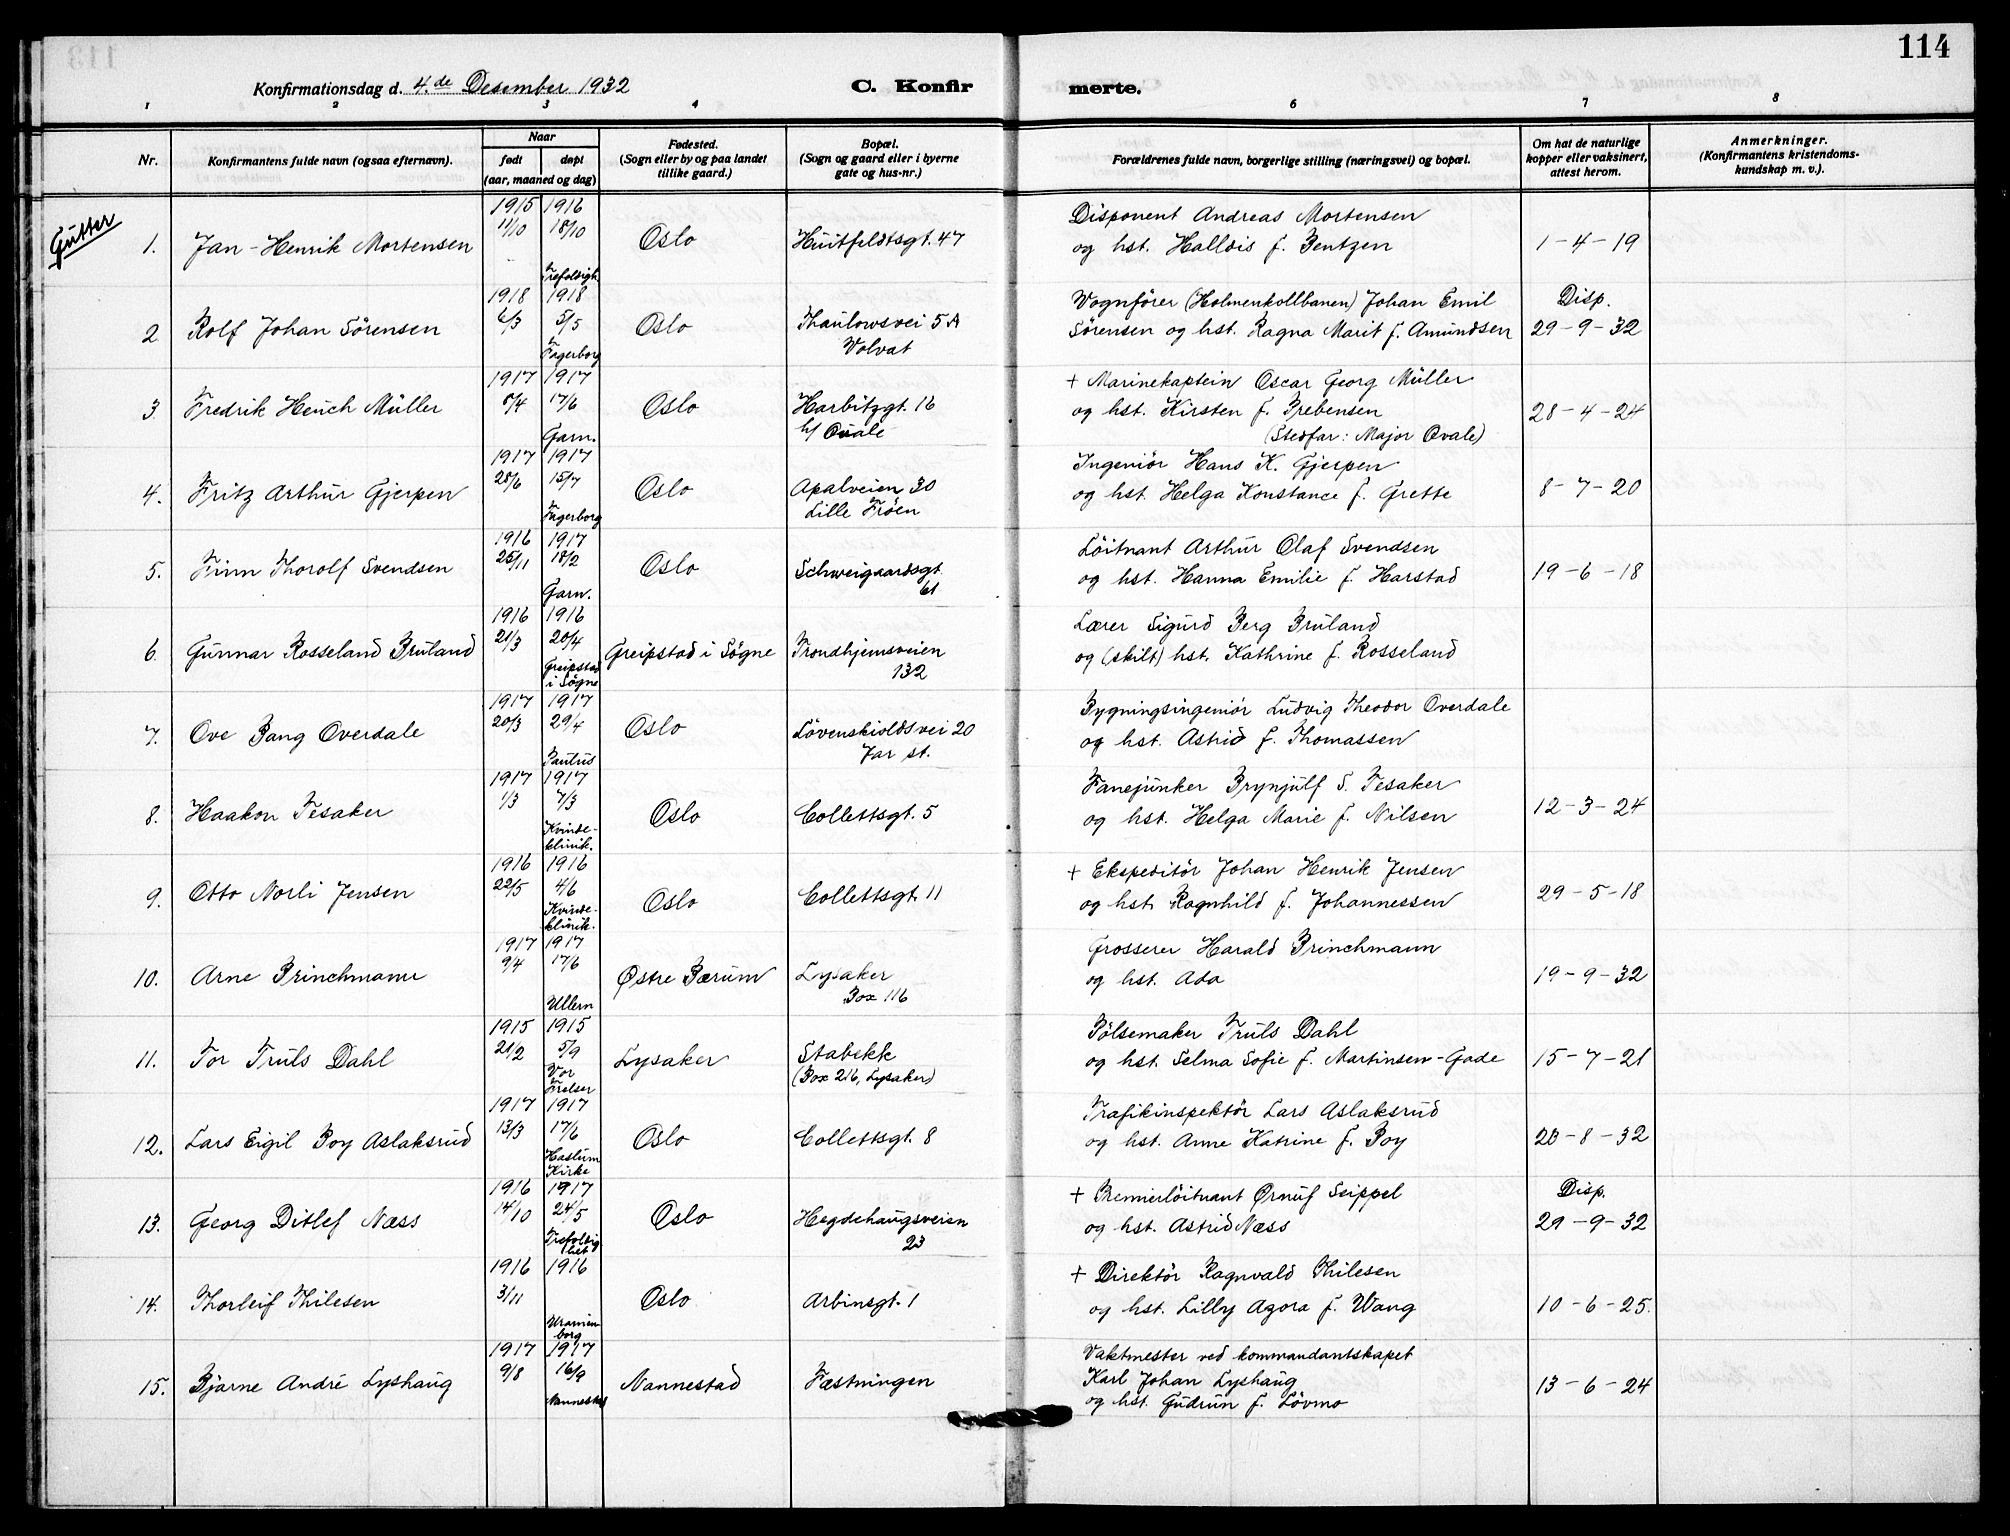 114
Konfirmationsdag d. 4.de Desember 1932
C. Konfirmerte.
1 2 3 4 6 7 8
Nr.
Konfirmantens fulde navn (ogsaa efternavn).
Naar
født døpt
(aar, maaned og dag)
Fødested.
(Sogn eller by og paa landet
tillike gaard.)
Bopæl.
(Sogn og gaard eller i byerne
gate og hus-nr.)
Forældrenes fulde navn, borgerlige stilling (næringsvei) og bopæl.
Om hat de naturlige
kopper eller vaksinert,
attest herom.
Anmerkninger.
(Konfirmantens kristendoms-
kundskap m. v.).
Gutter
1. Jan-Henrik Mortensen 1915 11/10 1916 18/10 Trefoldigh. Oslo Huitfeldtsgt. 47 Disponent Andreas Mortensen
og hst. Halldis f. Bentzen 1-4-19
2 Rolf Johan Sörensen 1918 6/3 1918 5/5 Fagerborg Oslo Thaulowsvei 5A
Volvat Vognförer (Holmenkollbanen) Johan Emil
Sörensen og hst. Ragna Marit f. Amundsen Disp.
29-9-32
3 Fredrik Heuch Müller 1917 8/4 1917 17/6 Garn. Oslo Harbitzgt. 16
h/ Ovale + Marinekaptein Oscar Georg Müller
og hst. Kirsten f. Prebensen
(Stedfar: Major Ovale) 28-4-24
4. Fritz Arthur Gjerpen 1917 28/6 1917 15/7 Fagerborg Oslo Apalveien 30
Lille Fröen Ingeniör Hans K. Gjerpen
og hst. Helga Konstance f. Grette 8-7-20
5. Finn Thorolf Svendsen 1916 25/11 1917 18/2 Garn. Oslo Schweigaardsgt
61 Löitnant Arthur Olaf Svendsen
og hst. Hanna Emilie f. Harstad 19-6-18
6. Gunnar Rosseland Bruland 1916 21/3 1916 20/4 Greipstad
i Sögne Greipstad i Sögne Trondhjemsveien
132 Lærer Sigurd Berg Bruland
og (skilt) hst. Kathrine f. Rosseland
7. Ove Bang Overdale 1917 20/3 1917 29/4 Paulus Oslo Lövenskioldsvei 20
Jar st. Bygningsingeniör Ludvig Theodor Overdale
og hst. Astrid f. Thomassen
8. Haakon Tesaker 1917 1/3 1917 7/3 Kvinde-
klinik. Oslo Collettsgt. 5 Fanejunker Brynjulf S. Tesaker
og hst. Helga Marie f. Nilsen 12-3-24
9. Otto Norli Jensen 1916 22/5 1916 4/6 Kvinde-
klinik. Oslo Collettsgt. 11 + Ekspeditör Johan Henrik Jensen
og hst. Ragnhild f. Johannessen 29-5-18
10. Arne Brinchmann 1917 9/4 1917 17/6 Ullern Østre Bærum Lysaker
Box 116 Grosserer Harald Brinchmann
og hst. Ada 19-9-32
11. Tor Truls Dahl 1915 21/2 1915 5/9 Vor
Frelser Lysaker Stabekk
(Box 216, Lysaker) Pölsemaker Truls Dahl
og hst. Selma Sofie f. Martinsen-Gade 15-7-21
12. Lars Eigil Boy Aslaksrud 1917 13/3 1917 17/6 Haslum
Kirke Oslo Collettsgt. 8 Trafikinspektör Lars Aslaksrud
og hst. Anne Katrine f. Boy 23-8-32
13. Georg Ditlef Næss 1916 14/10 1917 24/5 Trefoldig
het Oslo Hegdehaugsveien
23 + Premierlöitnant Ørnuf Seippel
og hst. Astrid Næss Disp.
29-9-32
14. Thorleif Thilesen 1916 3/11 1916 Uranien
borg Oslo Arbinsgt. 1 + Direktör Ragnvald Thilesen
og hst. Lilly Agora f. Wang 10-6-25.
15. Bjarne André Lyshaug 1917 9/8 1917 16/9 Nannestad Nannestad Fæstningen Vaktmester ved kommandantskapet
Karl Johan Lyshaug
og hst. Gudrun f. Lövmo 13-6-24